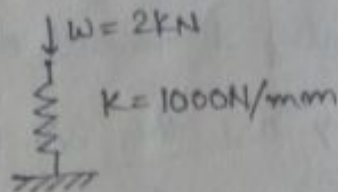 W = 2KN
K = 1000N/mm